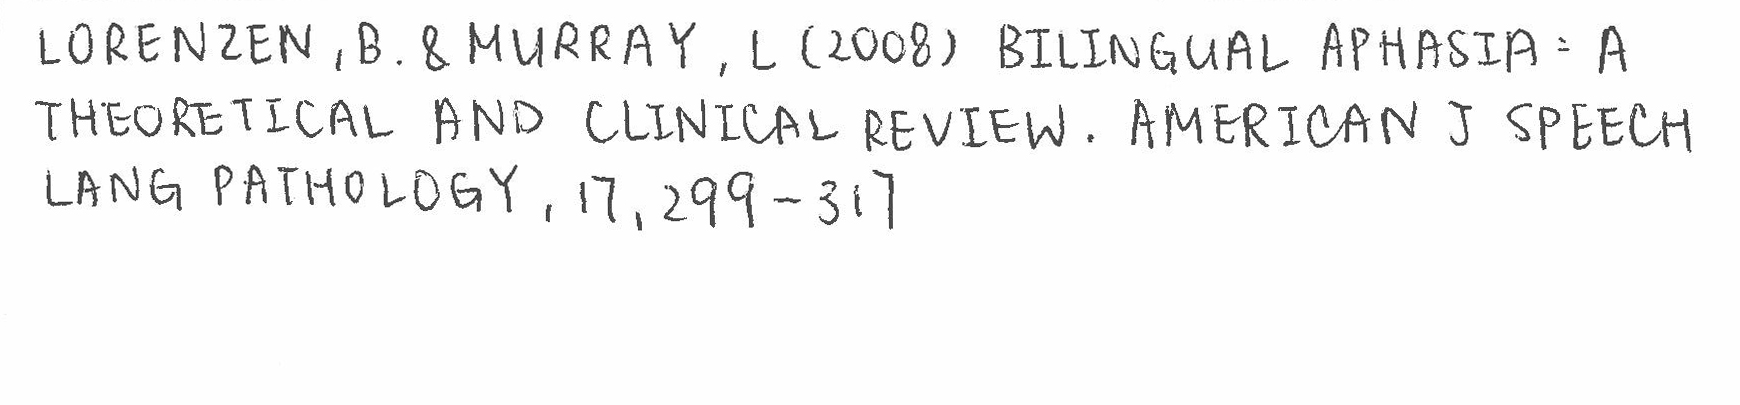 LORENZEN, B. & MURRAY, L (2008) BILINGUAL APHASIA: A
THEORETICAL AND CLINICAL REVIEW. AMERICAN J SPEECH
LANG PATHOLOGY, 17, 299-317